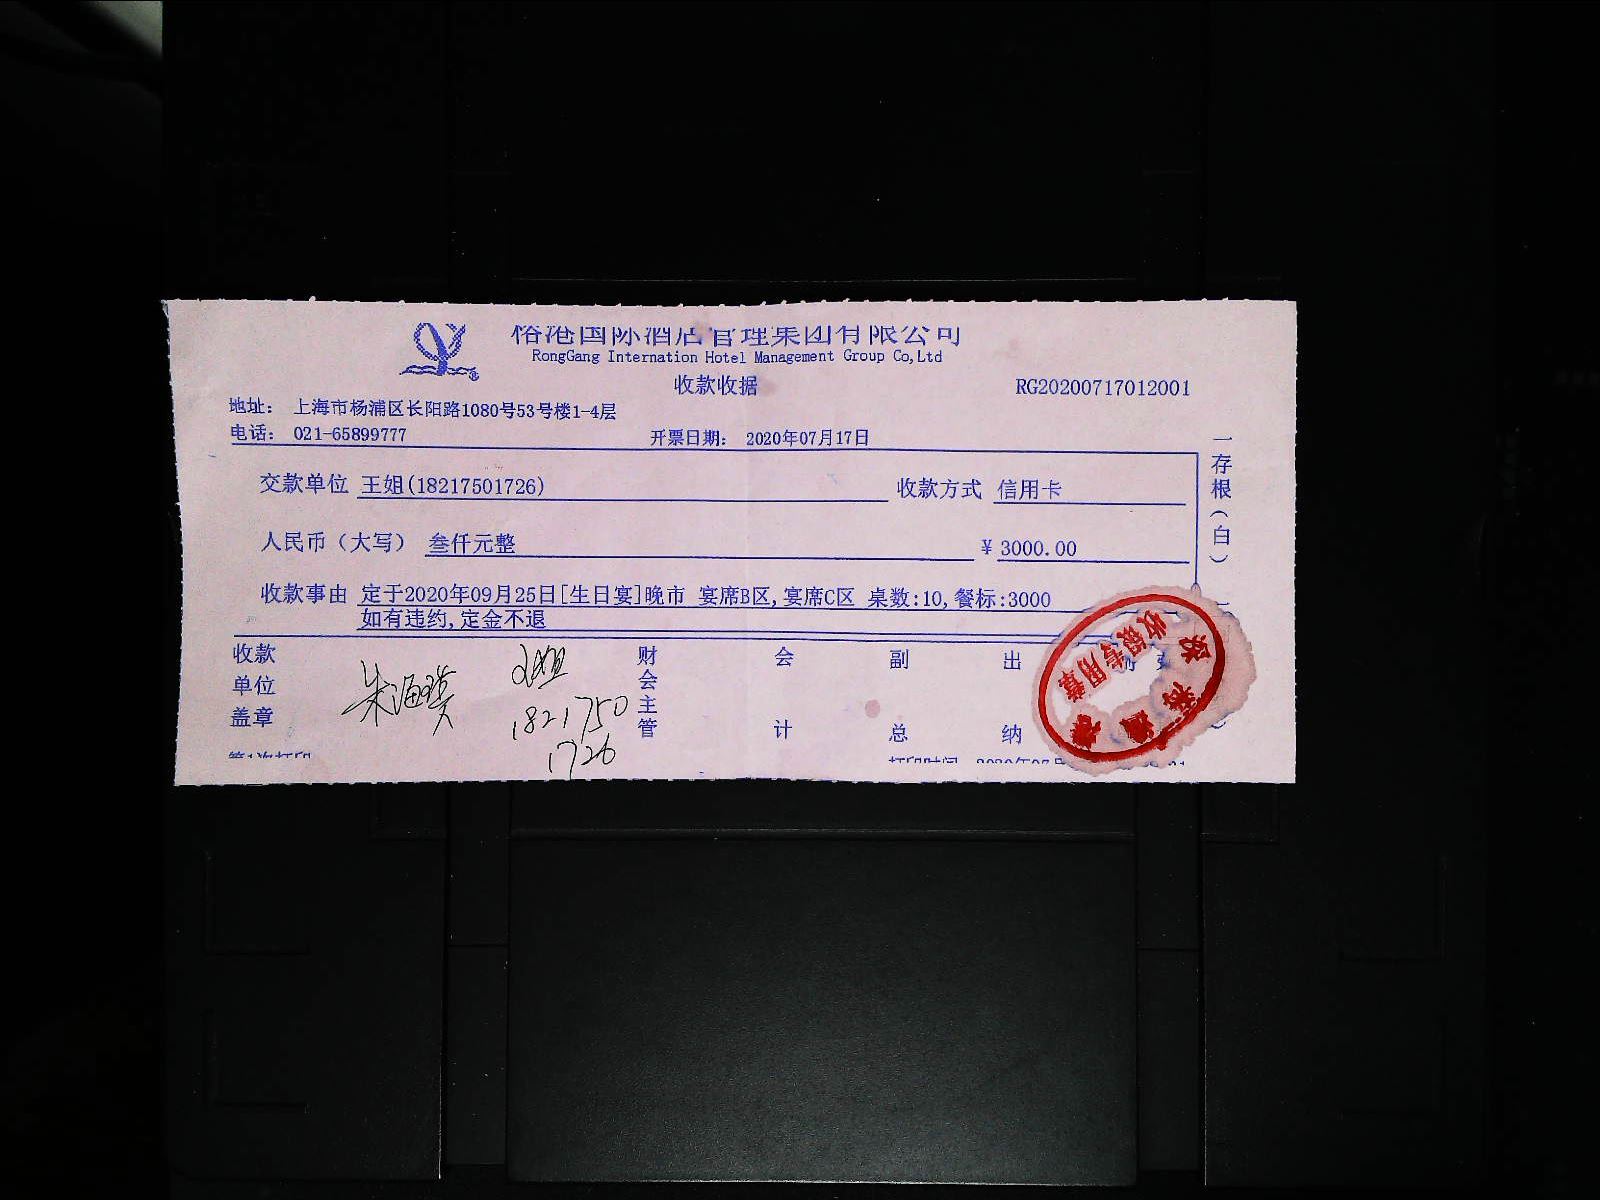 国际酒店管理集团有限公司
RongGang Internation Hotel Management Group Co,Ltd
收款收据
RG20200717012001
地址： 上海市杨浦区长阳路1080号53号楼1-4层
电话： 021-65899777
开票日期： 2020年07月17日
交款单位 王姐(18217501726)
收款方式 信用卡
人民币（大写） 叁仟元整
¥ 3000.00
收款事由 定于2020年09月25日[生日宴]晚市 宴席B区,宴席C区 桌数:10,餐标:3000
如有违约,定金不退
存根(白)
收款单位盖章
王姐
1821750
1726
财会主管
会计
副总
出纳
收银专用章